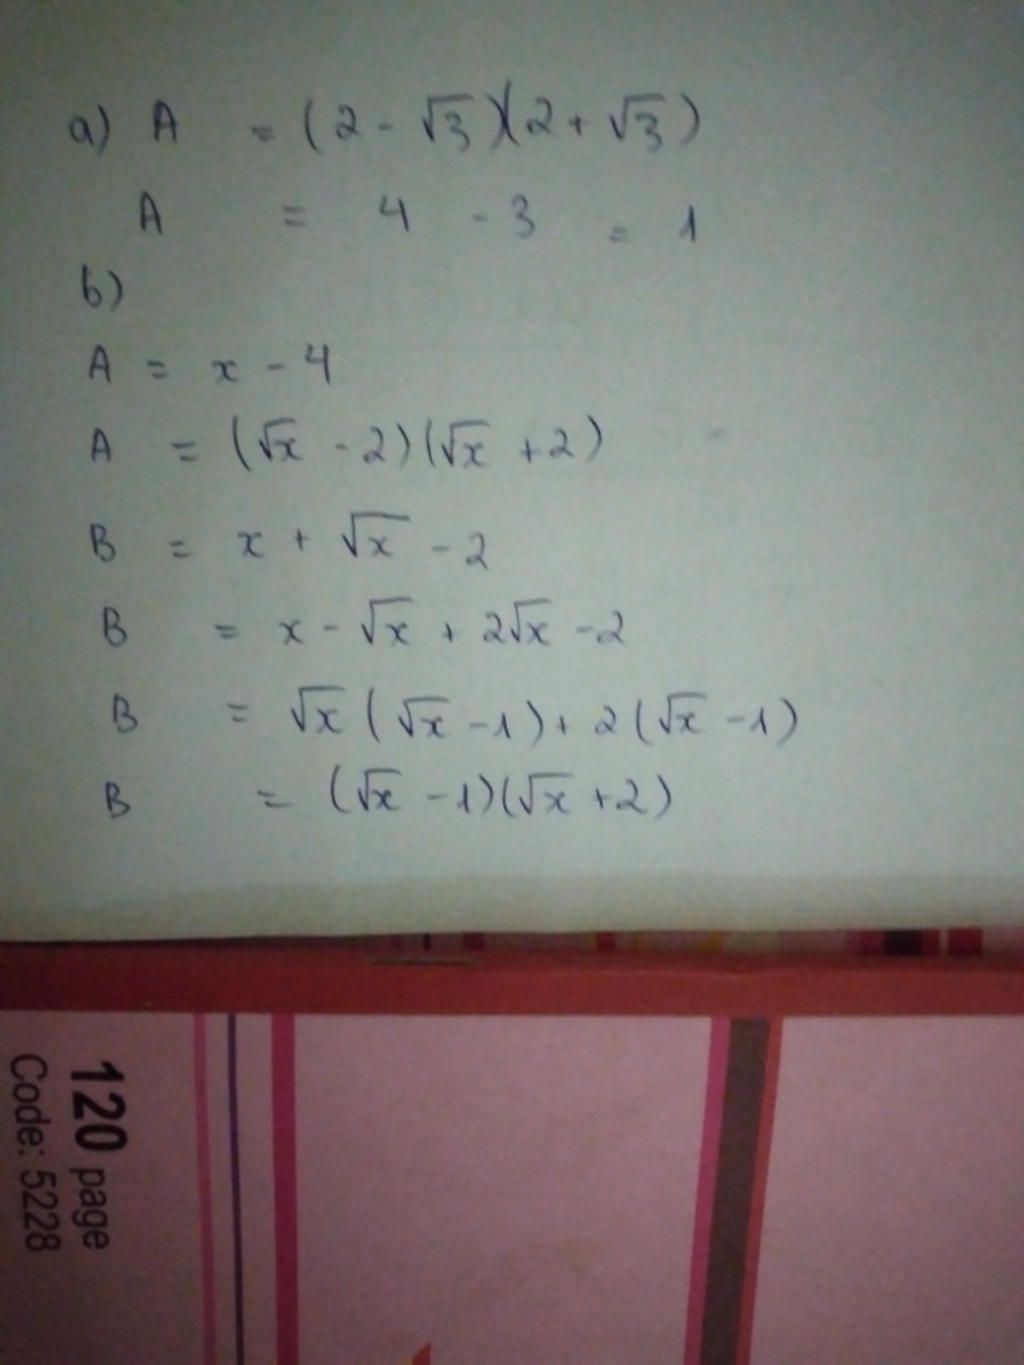 a) A = (2 - √3)(2 + √3)
A = 4 - 3 = 1
b)
A = x - 4
A = (√x - 2)(√x + 2)
B = x + √x - 2
B = x - √x + 2√x - 2
B = √x (√x - 1) + 2(√x - 1)
B = (√x - 1)(√x + 2)
120 page
Code: 5228